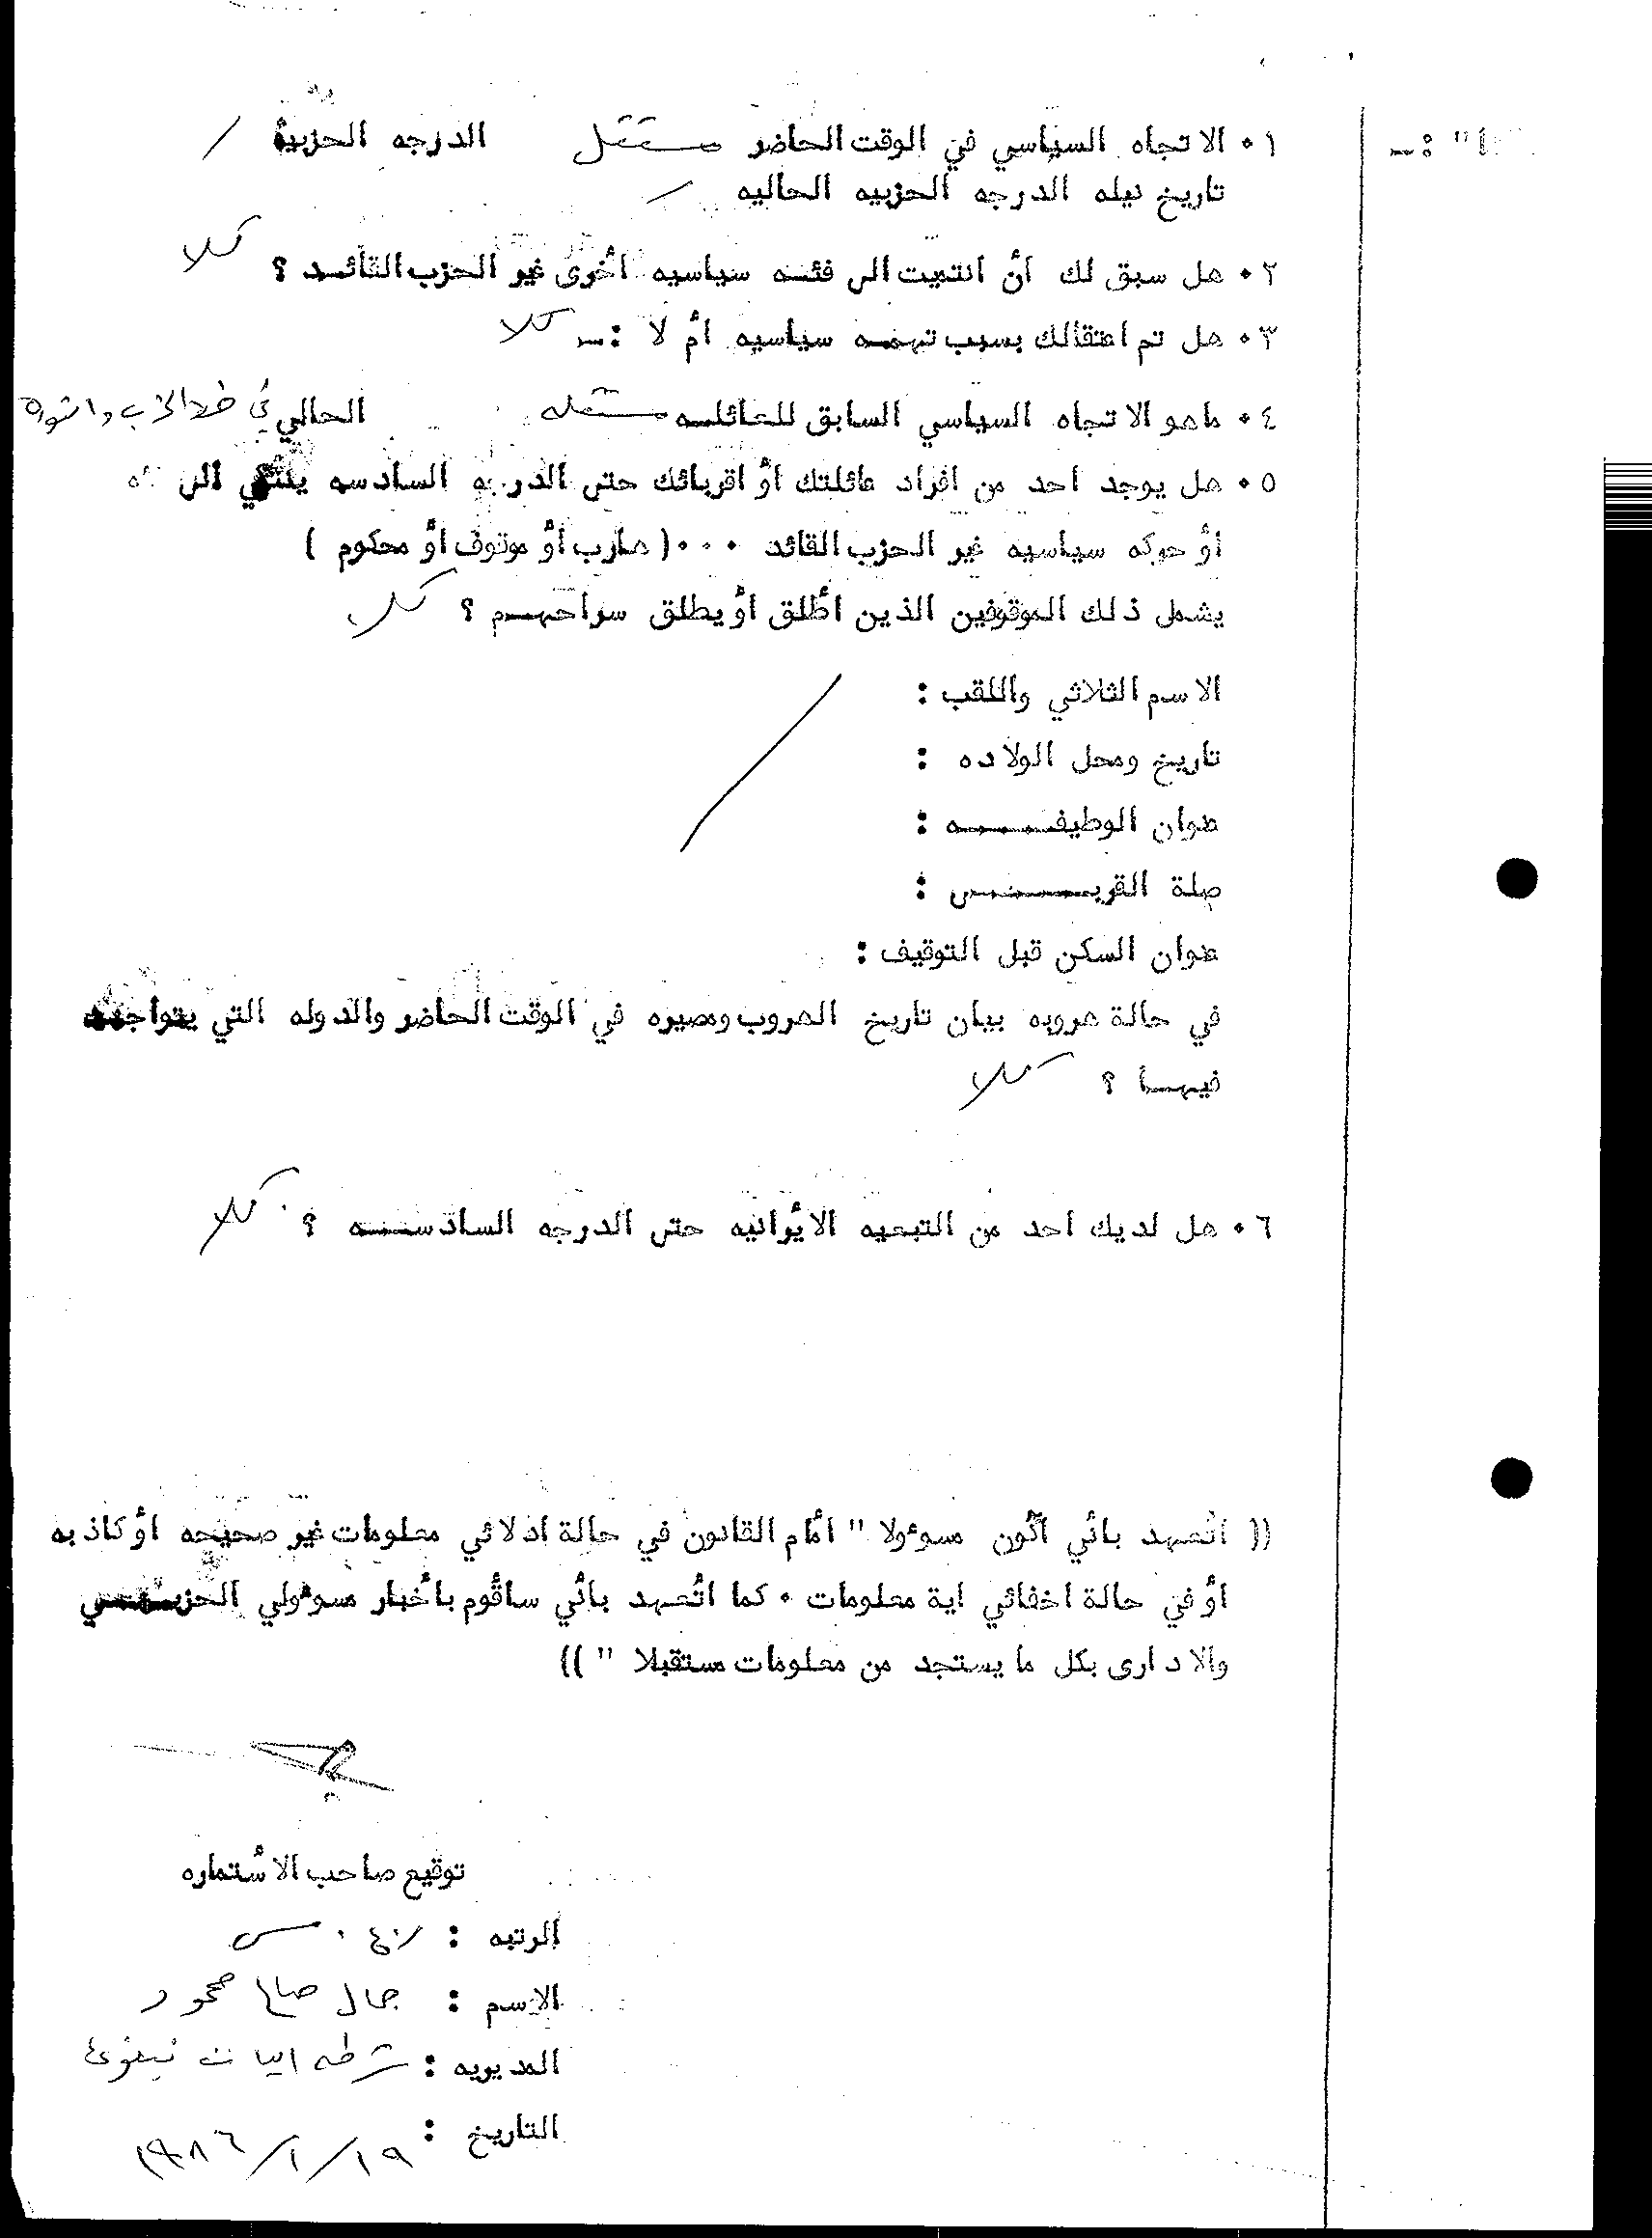 ١٠ الاتجاه السياسي في الوقت الحاضر مستقل الدرجه الحزبية /
تاريخ نيله الدرجه الحزبيه الحاليه /
٢٠ هل سبق لك أن انتميت الى فئه سياسيه أخرى غير الحزب القائد ؟ كلا
٣٠ هل تم اعتقالك بسبب تهمه سياسيه أم لا :ـ كلا
٤٠ ماهو الاتجاه السياسي السابق للعائله مستقله الحالي في خط الحزب والثورة
٥٠ هل يوجد احد من افراد عائلتك أو اقربائك حتى الدرجه السادسه ينتمي الى
أو حركه سياسيه غير الحزب القائد ٠٠٠( هارب أو موقوف أو محكوم )
يشمل ذلك الموقوفين الذين أطلق أو يطلق سراحهم ؟ كلا
الاسم الثلاثي واللقب :
تاريخ ومحل الولاده :
عنوان الوظيفه :
صلة القربى :
عنوان السكن قبل التوقيف :
في حالة هروبه بيان تاريخ الهروب ومصيره في الوقت الحاضر والدوله التي يتواجد
فيها ؟ كلا
٦٠ هل لديك احد من التبعيه الأيرانيه حتى الدرجه السادسه ؟ كلا
(( أتعهد بأني أكون مسوءولا " أمام القانون في حالة ادلائي معلومات غير صحيحه أو كاذبه
أو في حالة اخفائي اية معلومات ٠ كما أتعهد بأني سأقوم بأخبار مسوءولي الحزبي
والادارى بكل ما يستجد من معلومات مستقبلا " ))
توقيع صاحب الأستماره
الرتبه :
الاسم : جمال صالح محمود
المديريه : شرطه اليات نينوى
التاريخ : ١٩/١/١٩٨٦